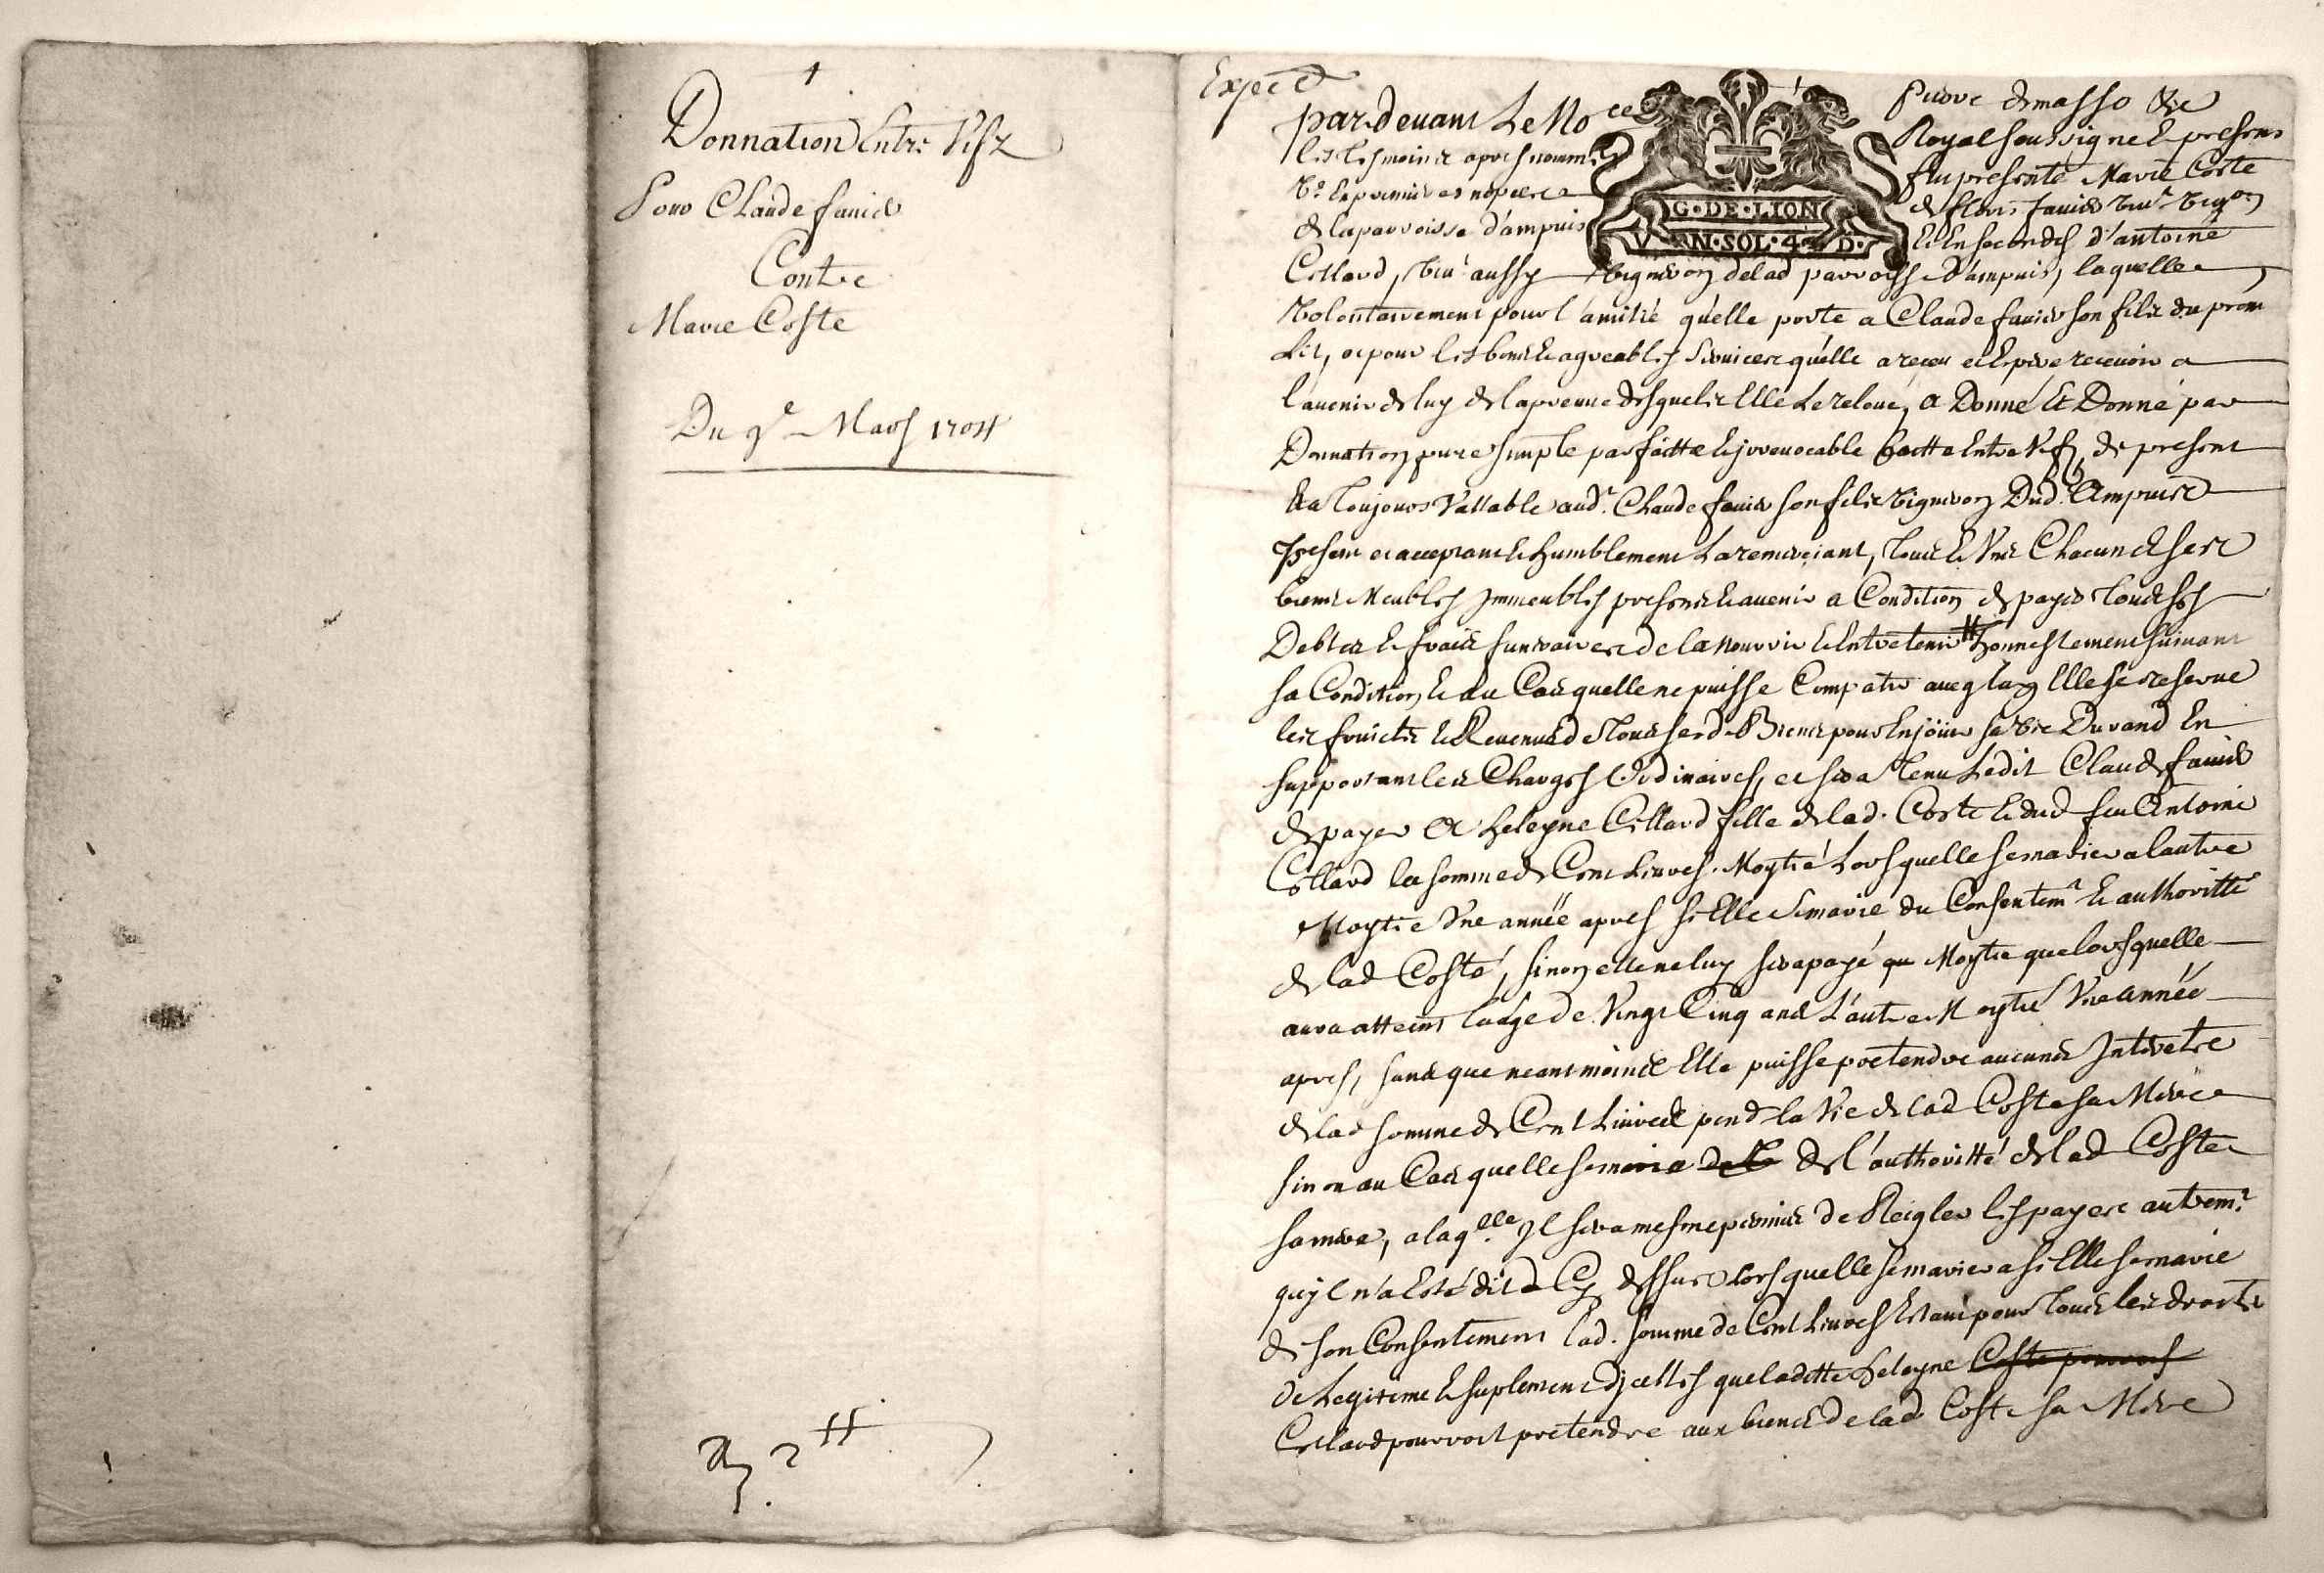 Donnation Entre Vifz
Pour Claude favier
Contre
Marie Coste
Du 9e Mars 1704
2 ₶
Exped
par devant Le No re
Royal soussigne & presens
les tesmoins apres nommes
fut presente Marie Coste
Ve en premieres nopces
de fleuris favier viv.t vig.on
de la parroisse d'ampuis
et En secondes d'antoine
G·DE·LION
V N·SOL·4 D·
Collard, viv.t aussy vigneron de lad parroisse d'ampuis, laquelle
Volontairement pour l'amitié qu'elle porte a Claude favier son filz du prem
Lit, et pour les bons & agreables services qu'elle a reçeu et Espere recevoir a
l'avenir de luy de la preuve desquels Elle Le releve, a Donné Et Donne par
Donnation pure simple parfaitte & jrrevocable faitte Entre Vifs, de present
& a toujours Vallable aud.t Claude favier son filz vigneron Dud. Ampuis
present et acceptant & humblement La remerciant, tous & Uns Chacuns ses
biens Meubles jmmeubles presens & avenir a Condition de payer tous ses
Debtes & frais funeraires de la nourrir & Entretenir honnestement suivant
sa Condition & au Cas quelle ne puisse Compatir avec luy Elle se reserve
les fruicts & Revenus de tous sesd. Biens pour En jöuir sa vie Durand En
supportant les Charges Ordinaires, et sera tenu Ledit Claude favier
de payer a heleyne Collard fille de lad. Coste & dud feu Antoine
Collard la somme de Cent Livres. Moytié Lors quelle se mariera lautre
Moytie Une annëe apres si Elle se marie du Consentem.t & authoritté
de lad Coste, sinon elle ne luy sera payé qu Moytie que lors quelle
aura atteint laâge de Vingt Cinq ans & L'autre Moytié Une année
apres, sans que neantmoins Elle puisse pretendre aucuns Interetz
de lad somme de Cent Livres pend.t la Vie de lad Coste sa Mere
sinon au Cas quelle se marie de l'authoritté de lad Coste
sa mere, a laq.lle jl sera mesme permis de Reigler les payes autrem.t
qu'jl n'a Esté dit Cy dessus lors quelle se mariera si Elle se marie
de son Consentement lad. somme de Cent Livres Estant pour tous les droits
de Legitime & suplement d'jcelles que ladette heleyne Coste pourroit
Collard pourroit pretendre aux biens de lad Coste sa Mere